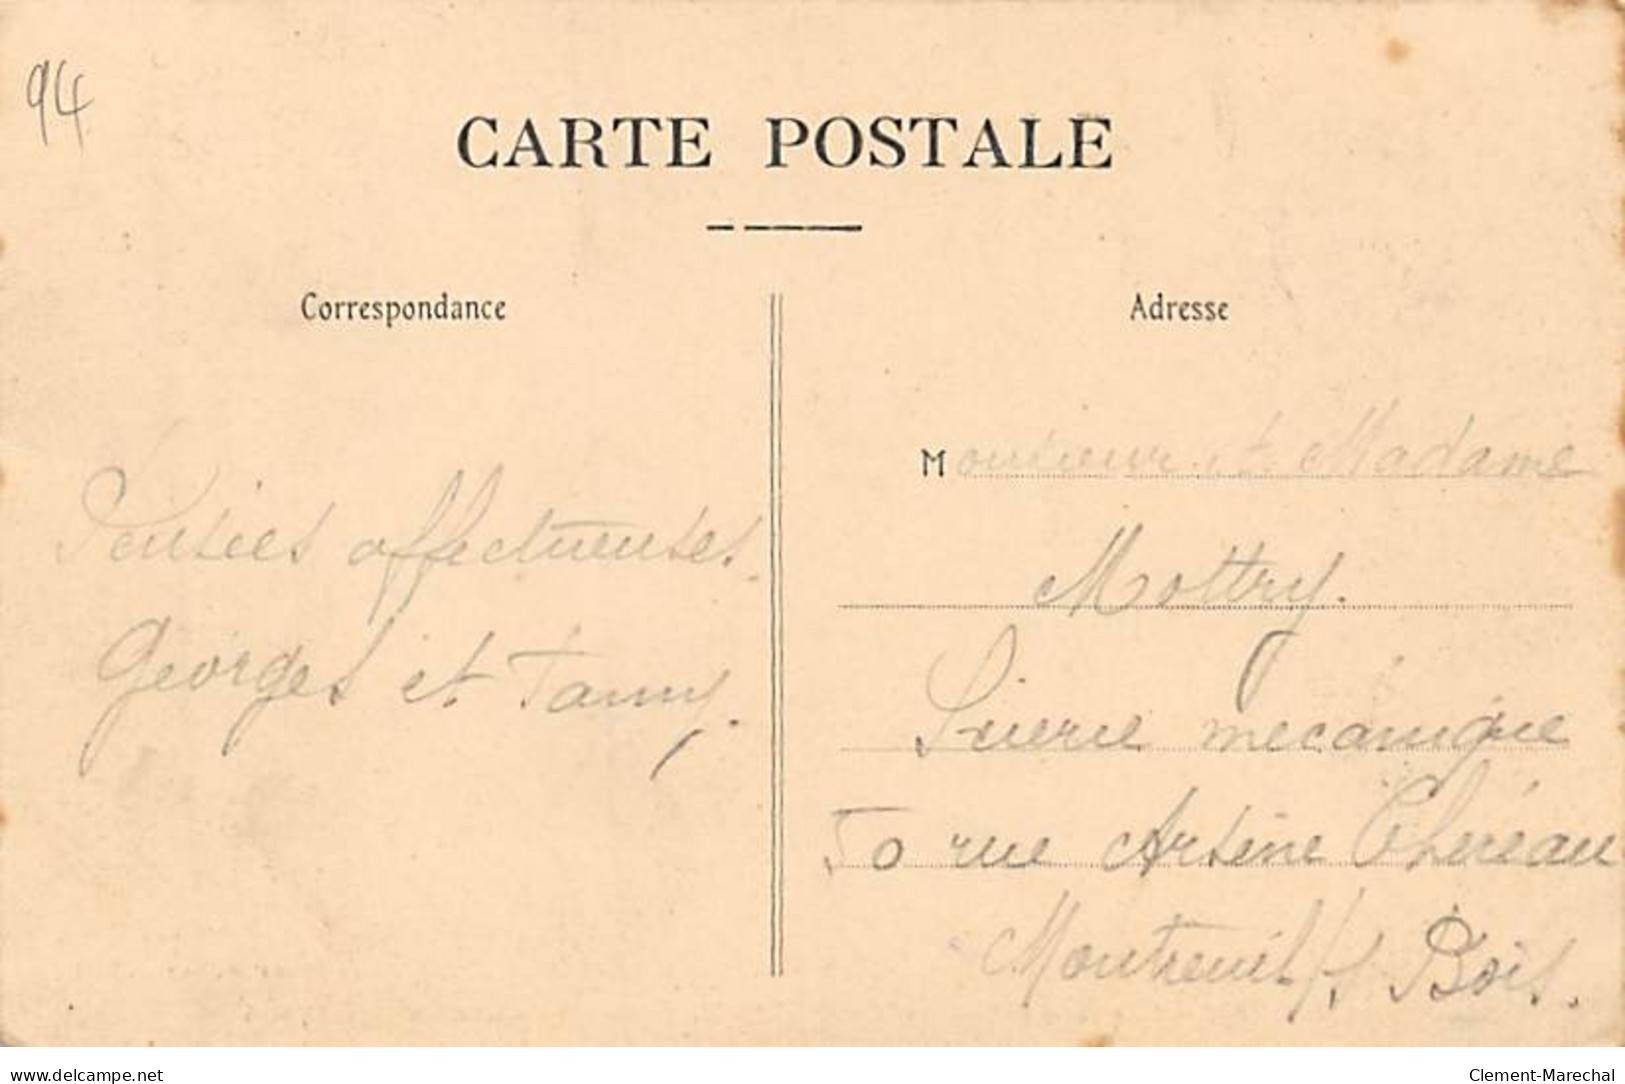 94
CARTE POSTALE
Correspondance
Adresse
Pensées affectueuses.
Georges et Fanny.
Monsieur et Madame
Mottry.
Scierie mecanique
50 rue Arsène Chéreau
Montreuil /s Bois.
www.delcampe.net
Clement-Marechal